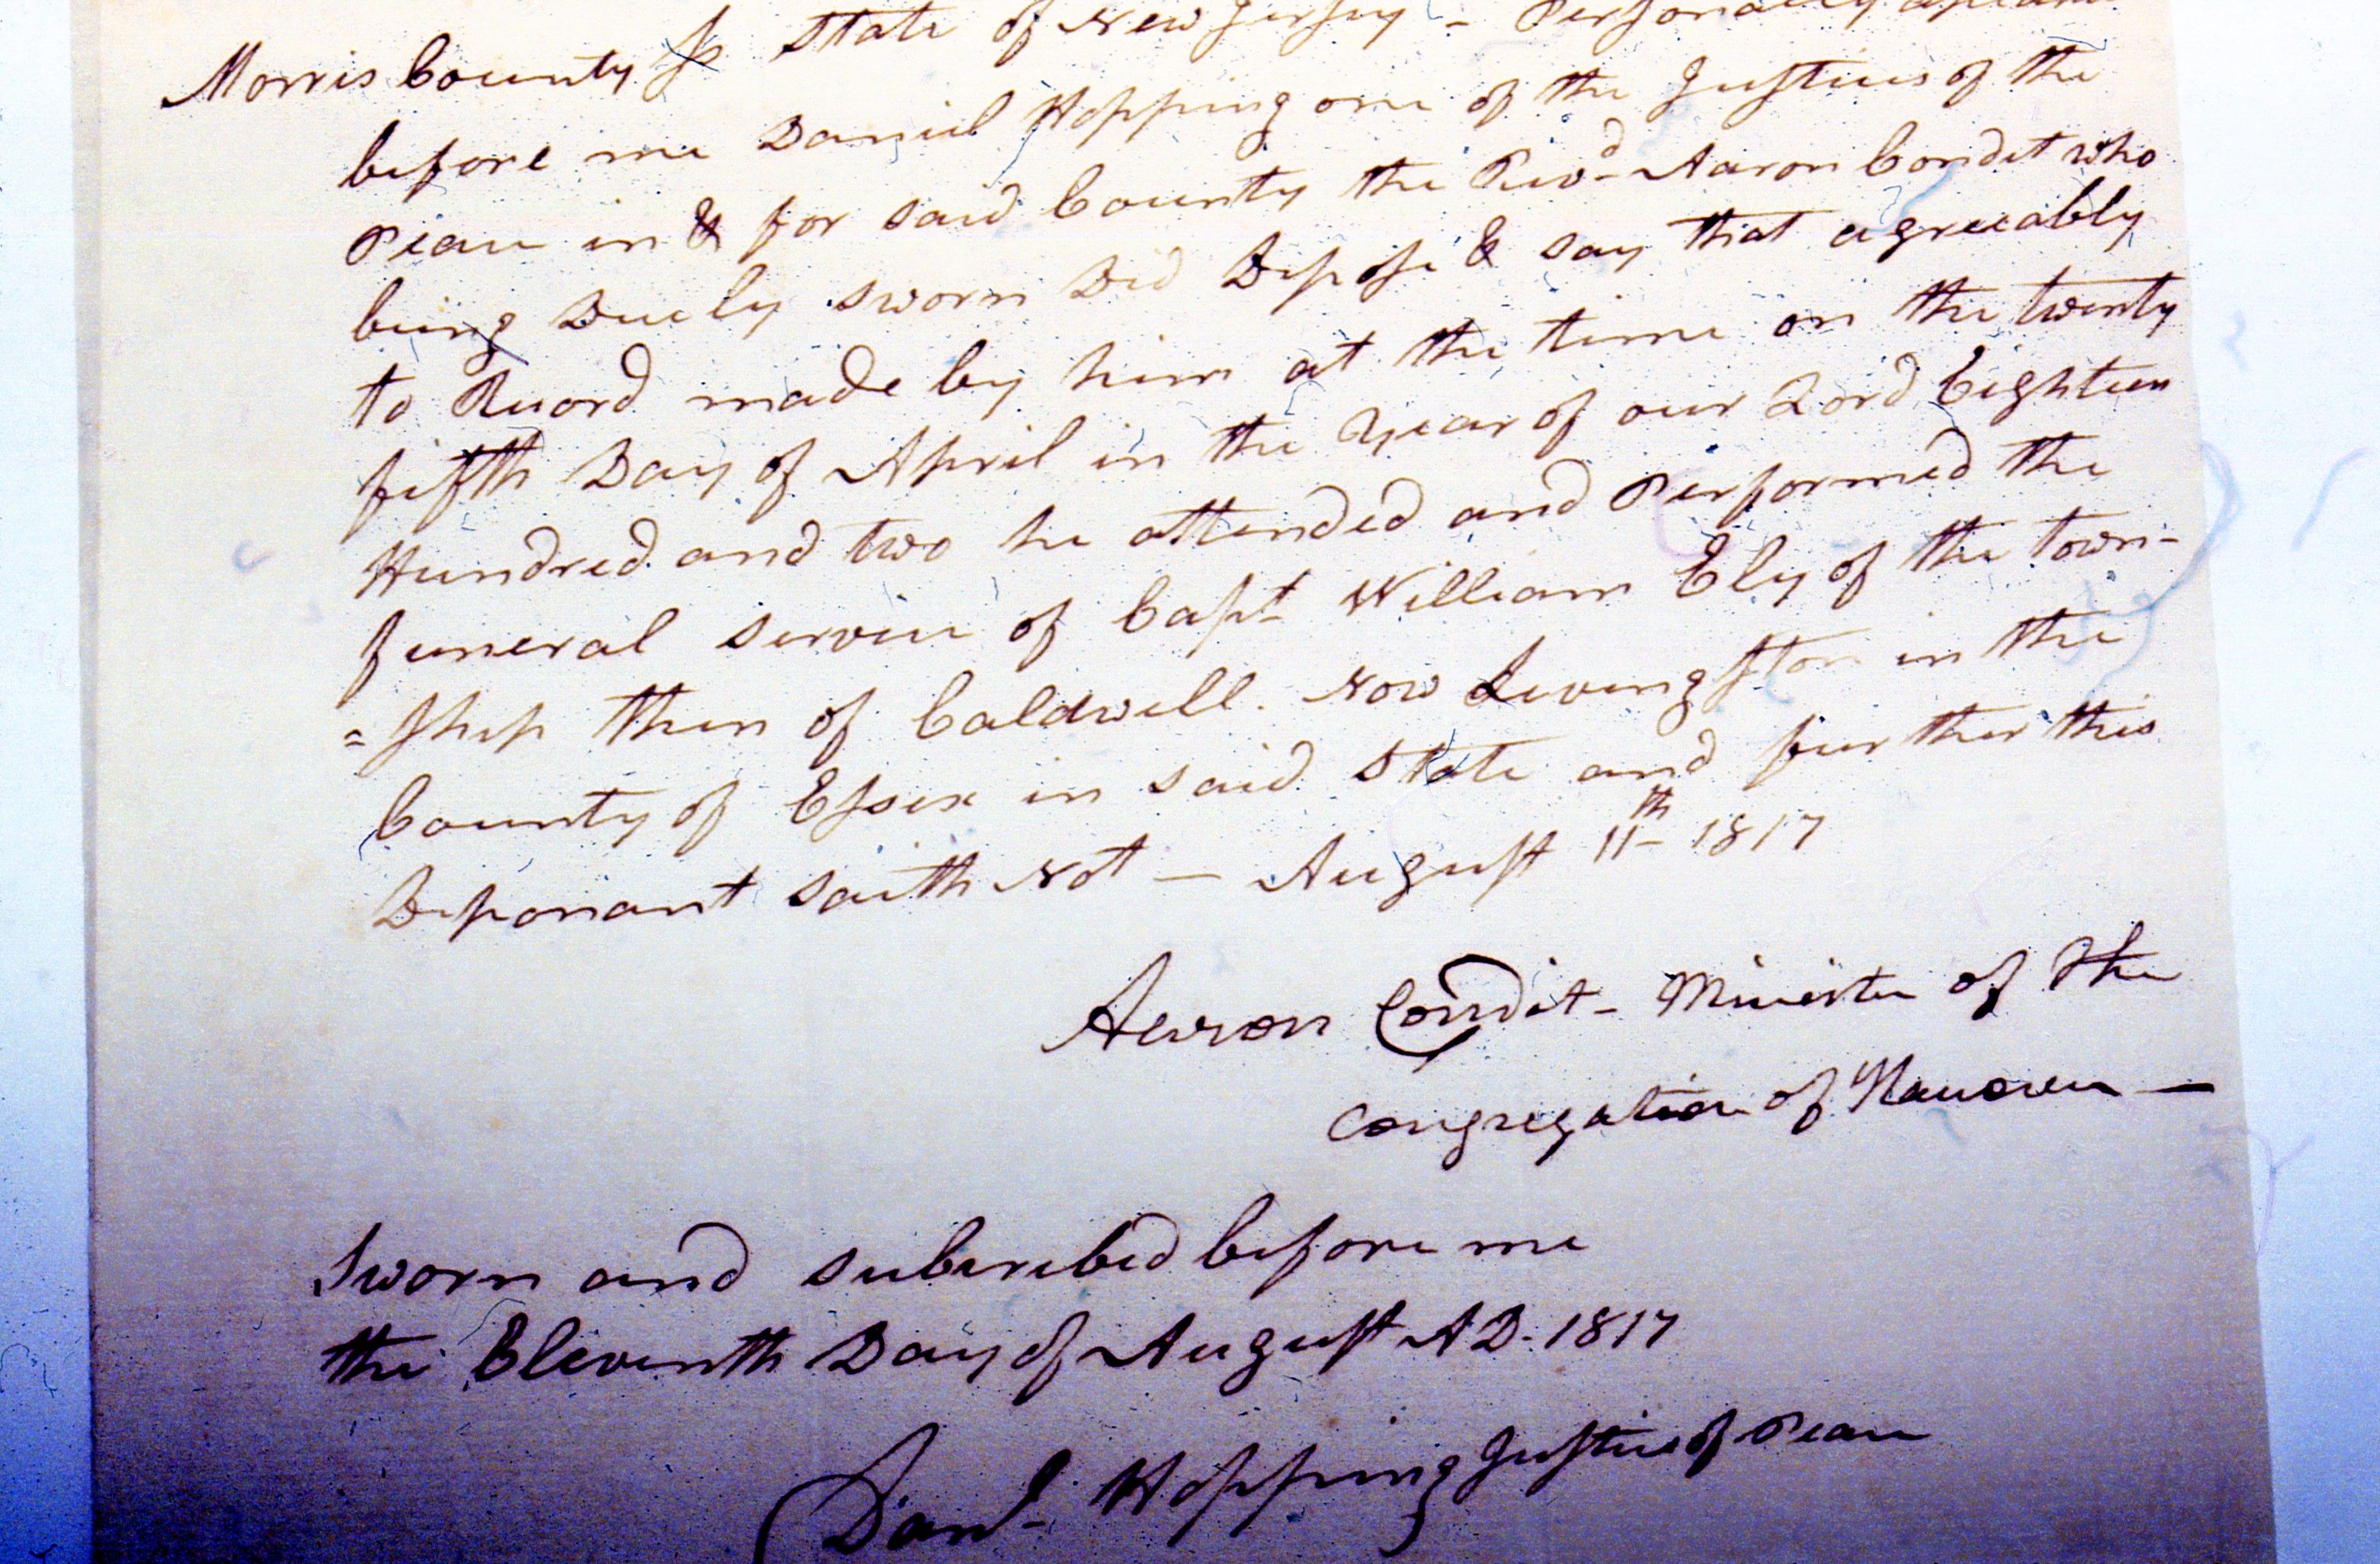 Morris County ss State of New Jersey - Personally appeared
before me Daniel Hopping one of the Justices of the
Peace in & for said County the Revd Aaron Condit who
being Duely sworn Did Depose & say that agreeably
to Record made by him at the time on the twenty
fifth Day of April in the Year of our Lord Eighteen
Hundred and two he attended and Performed the
funeral service of Capt William Ely of the town-
=ship then of Caldwell. Now Livingston in the
County of Essex in said State and further this
Deponant saith Not — August 11th 1817
Aaron Condit - Minister of the
Congregation of Hanover —
Sworn and subcribed before me
the Eleventh Day of August AD. 1817
Danl Hopping Justice of Peace